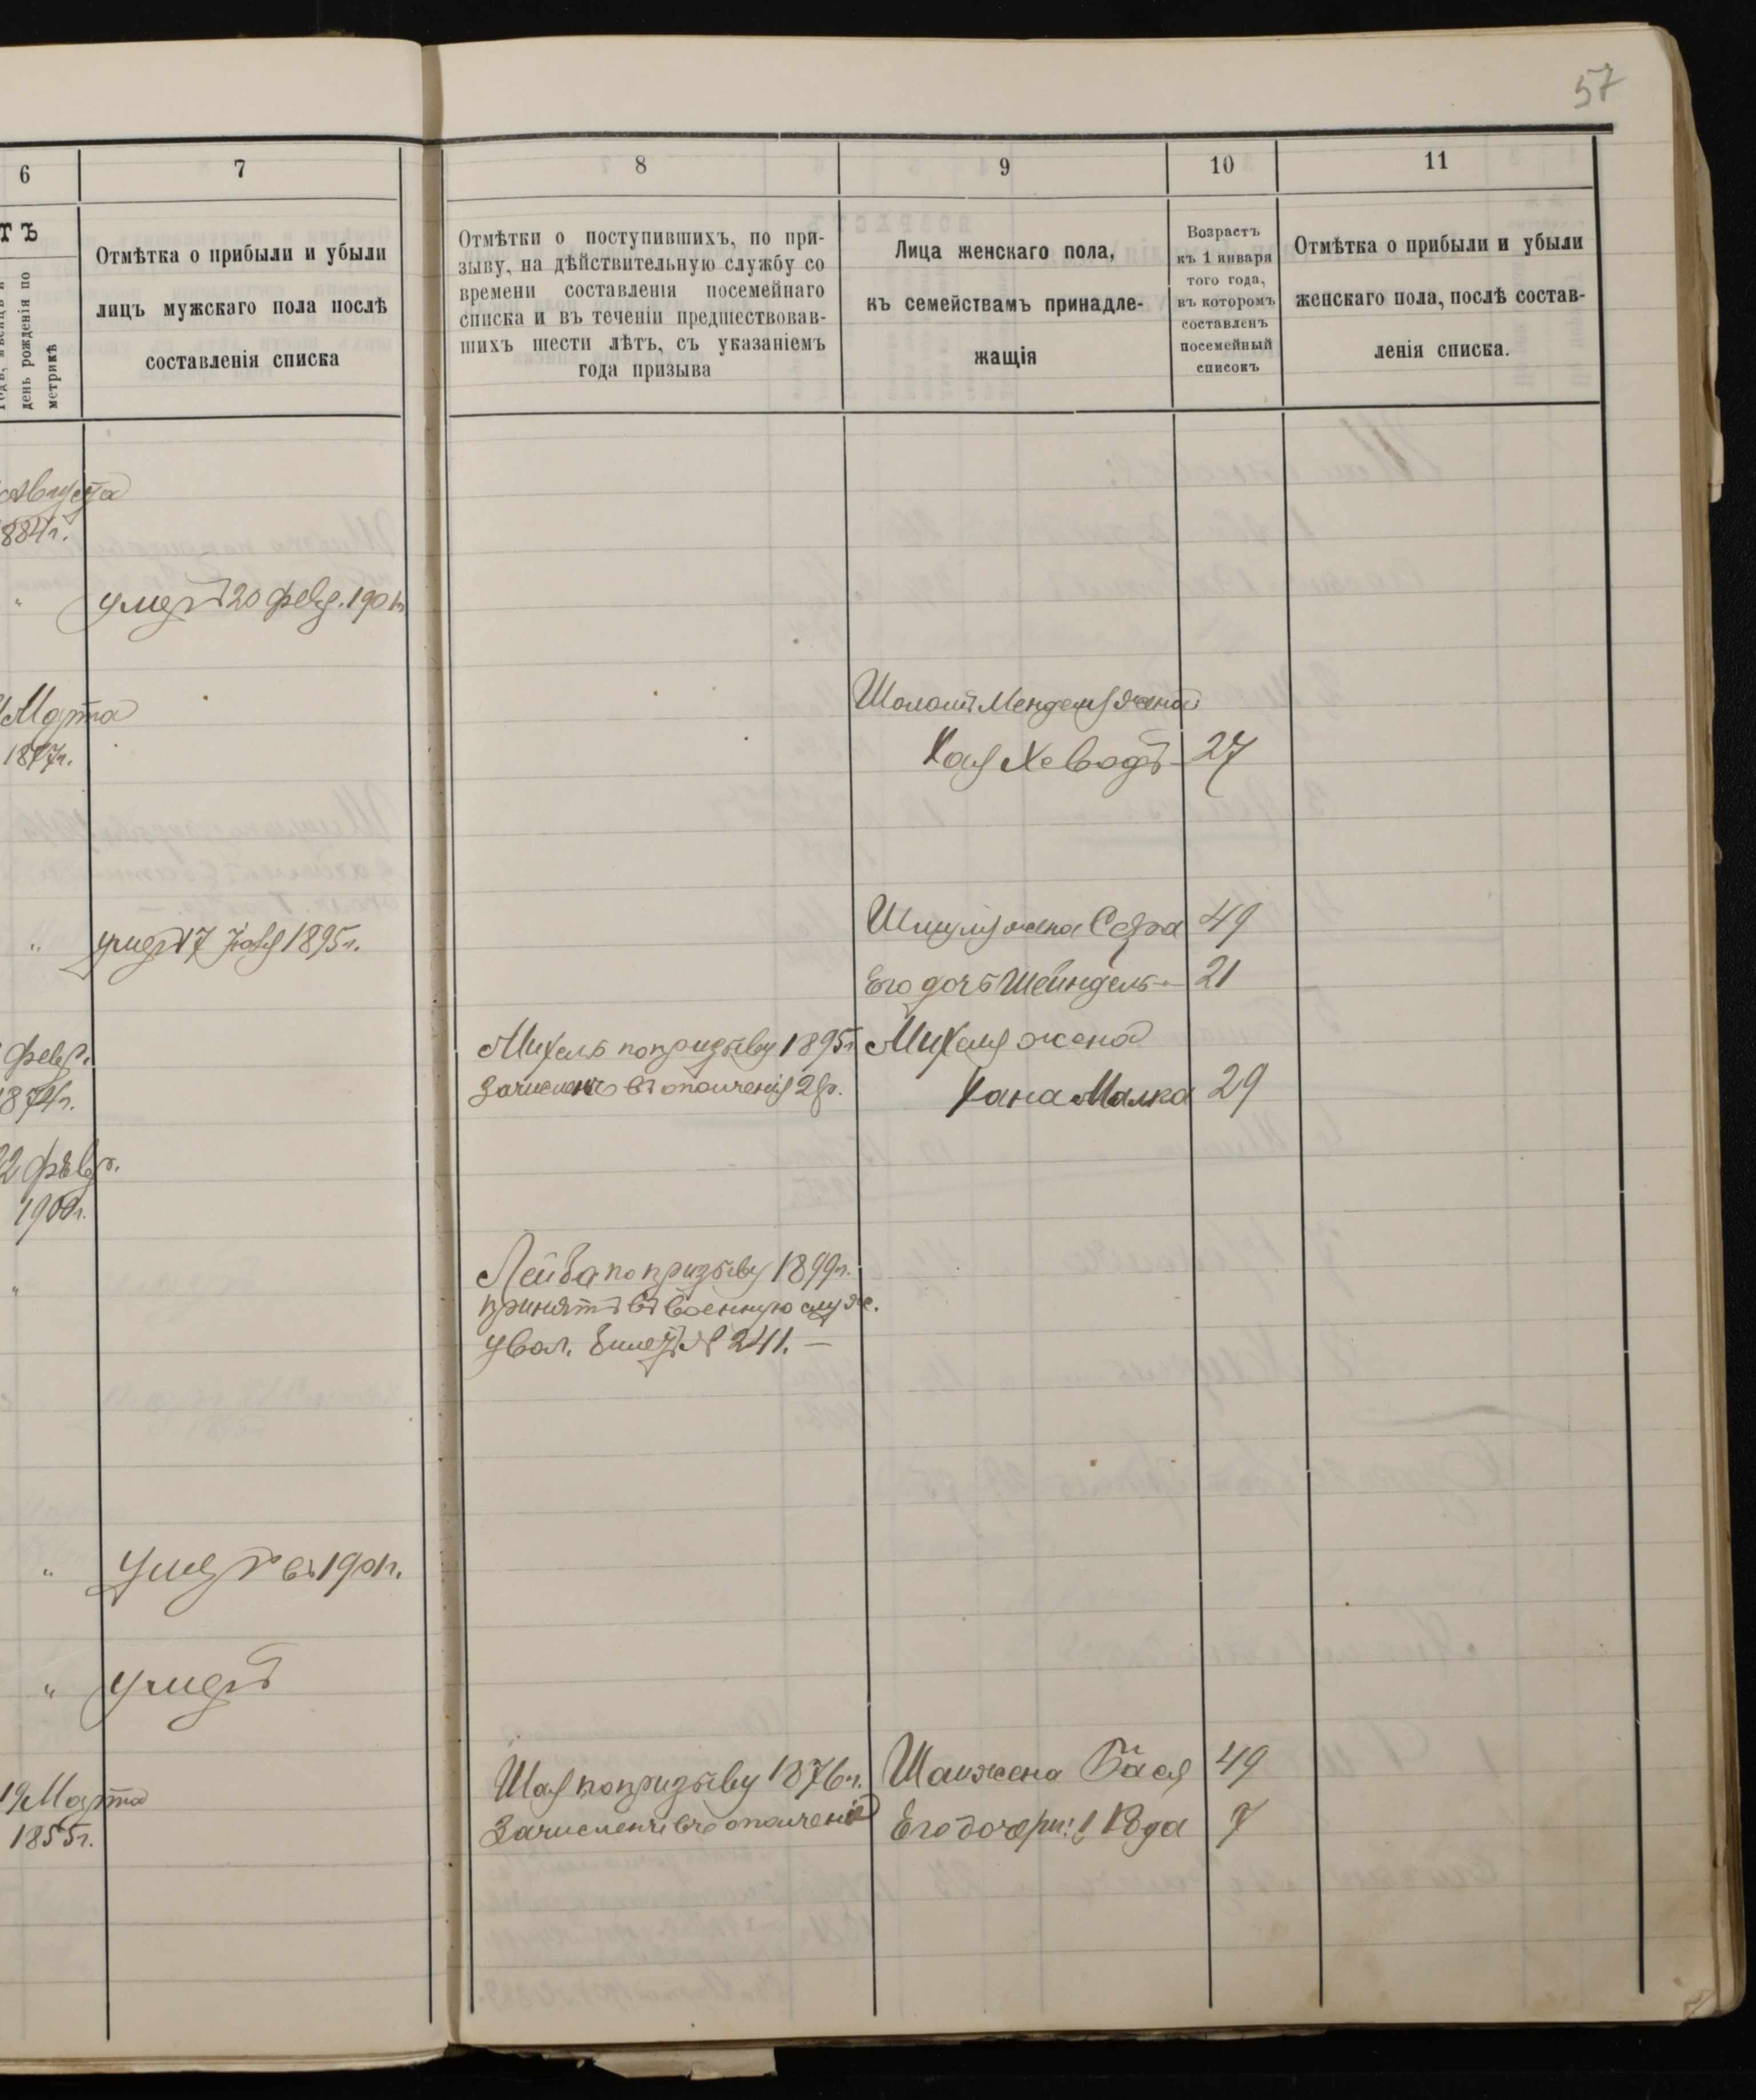 57
6
7
8
9
10
11
ТЪ
день рожденія по
метрикѣ
Отмѣтка о прибыли и убыли
лицъ мужскаго пола послѣ
составленія списка
Отмѣтки о поступившихъ, по при-
зыву, на дѣйствительную службу со
времени составленія посемейнаго
списка и въ теченіи предшествовав-
шихъ шести лѣтъ, съ указаніемъ
года призыва
Лица женскаго пола,
къ семействамъ принадле-
жащія
Возрастъ
къ 1 января
того года,
въ которомъ
составленъ
посемейный
списокъ
Отмѣтка о прибыли и убыли
женскаго пола, послѣ состав-
ленія списка.
Августа
884г.
" умеръ 20 февр. 1901г
Марта
1877г.
Шоломъ Менделя жена
Хая 27
" умеръ 17 1895г.
Шмуля жена Сора 49
Его дочь Шейндель 21
февр.
874г.
Михель по призыву 1895г
зачисленъ въ ополченіе 2 р.
Михеля жена
Хана Малка 29
2 февр.
1900г.
"
Лейба по призыву 1899г.
принятъ въ военную служ.
увол. билетъ № 241. —
" умеръ въ 1901г.
" умеръ
19 Марта
1855г.
Шая по призыву 1876г.
Зачисленъ въ ополченіе
Шаи жена Бася 49
Его дочери: 1 Рода 7